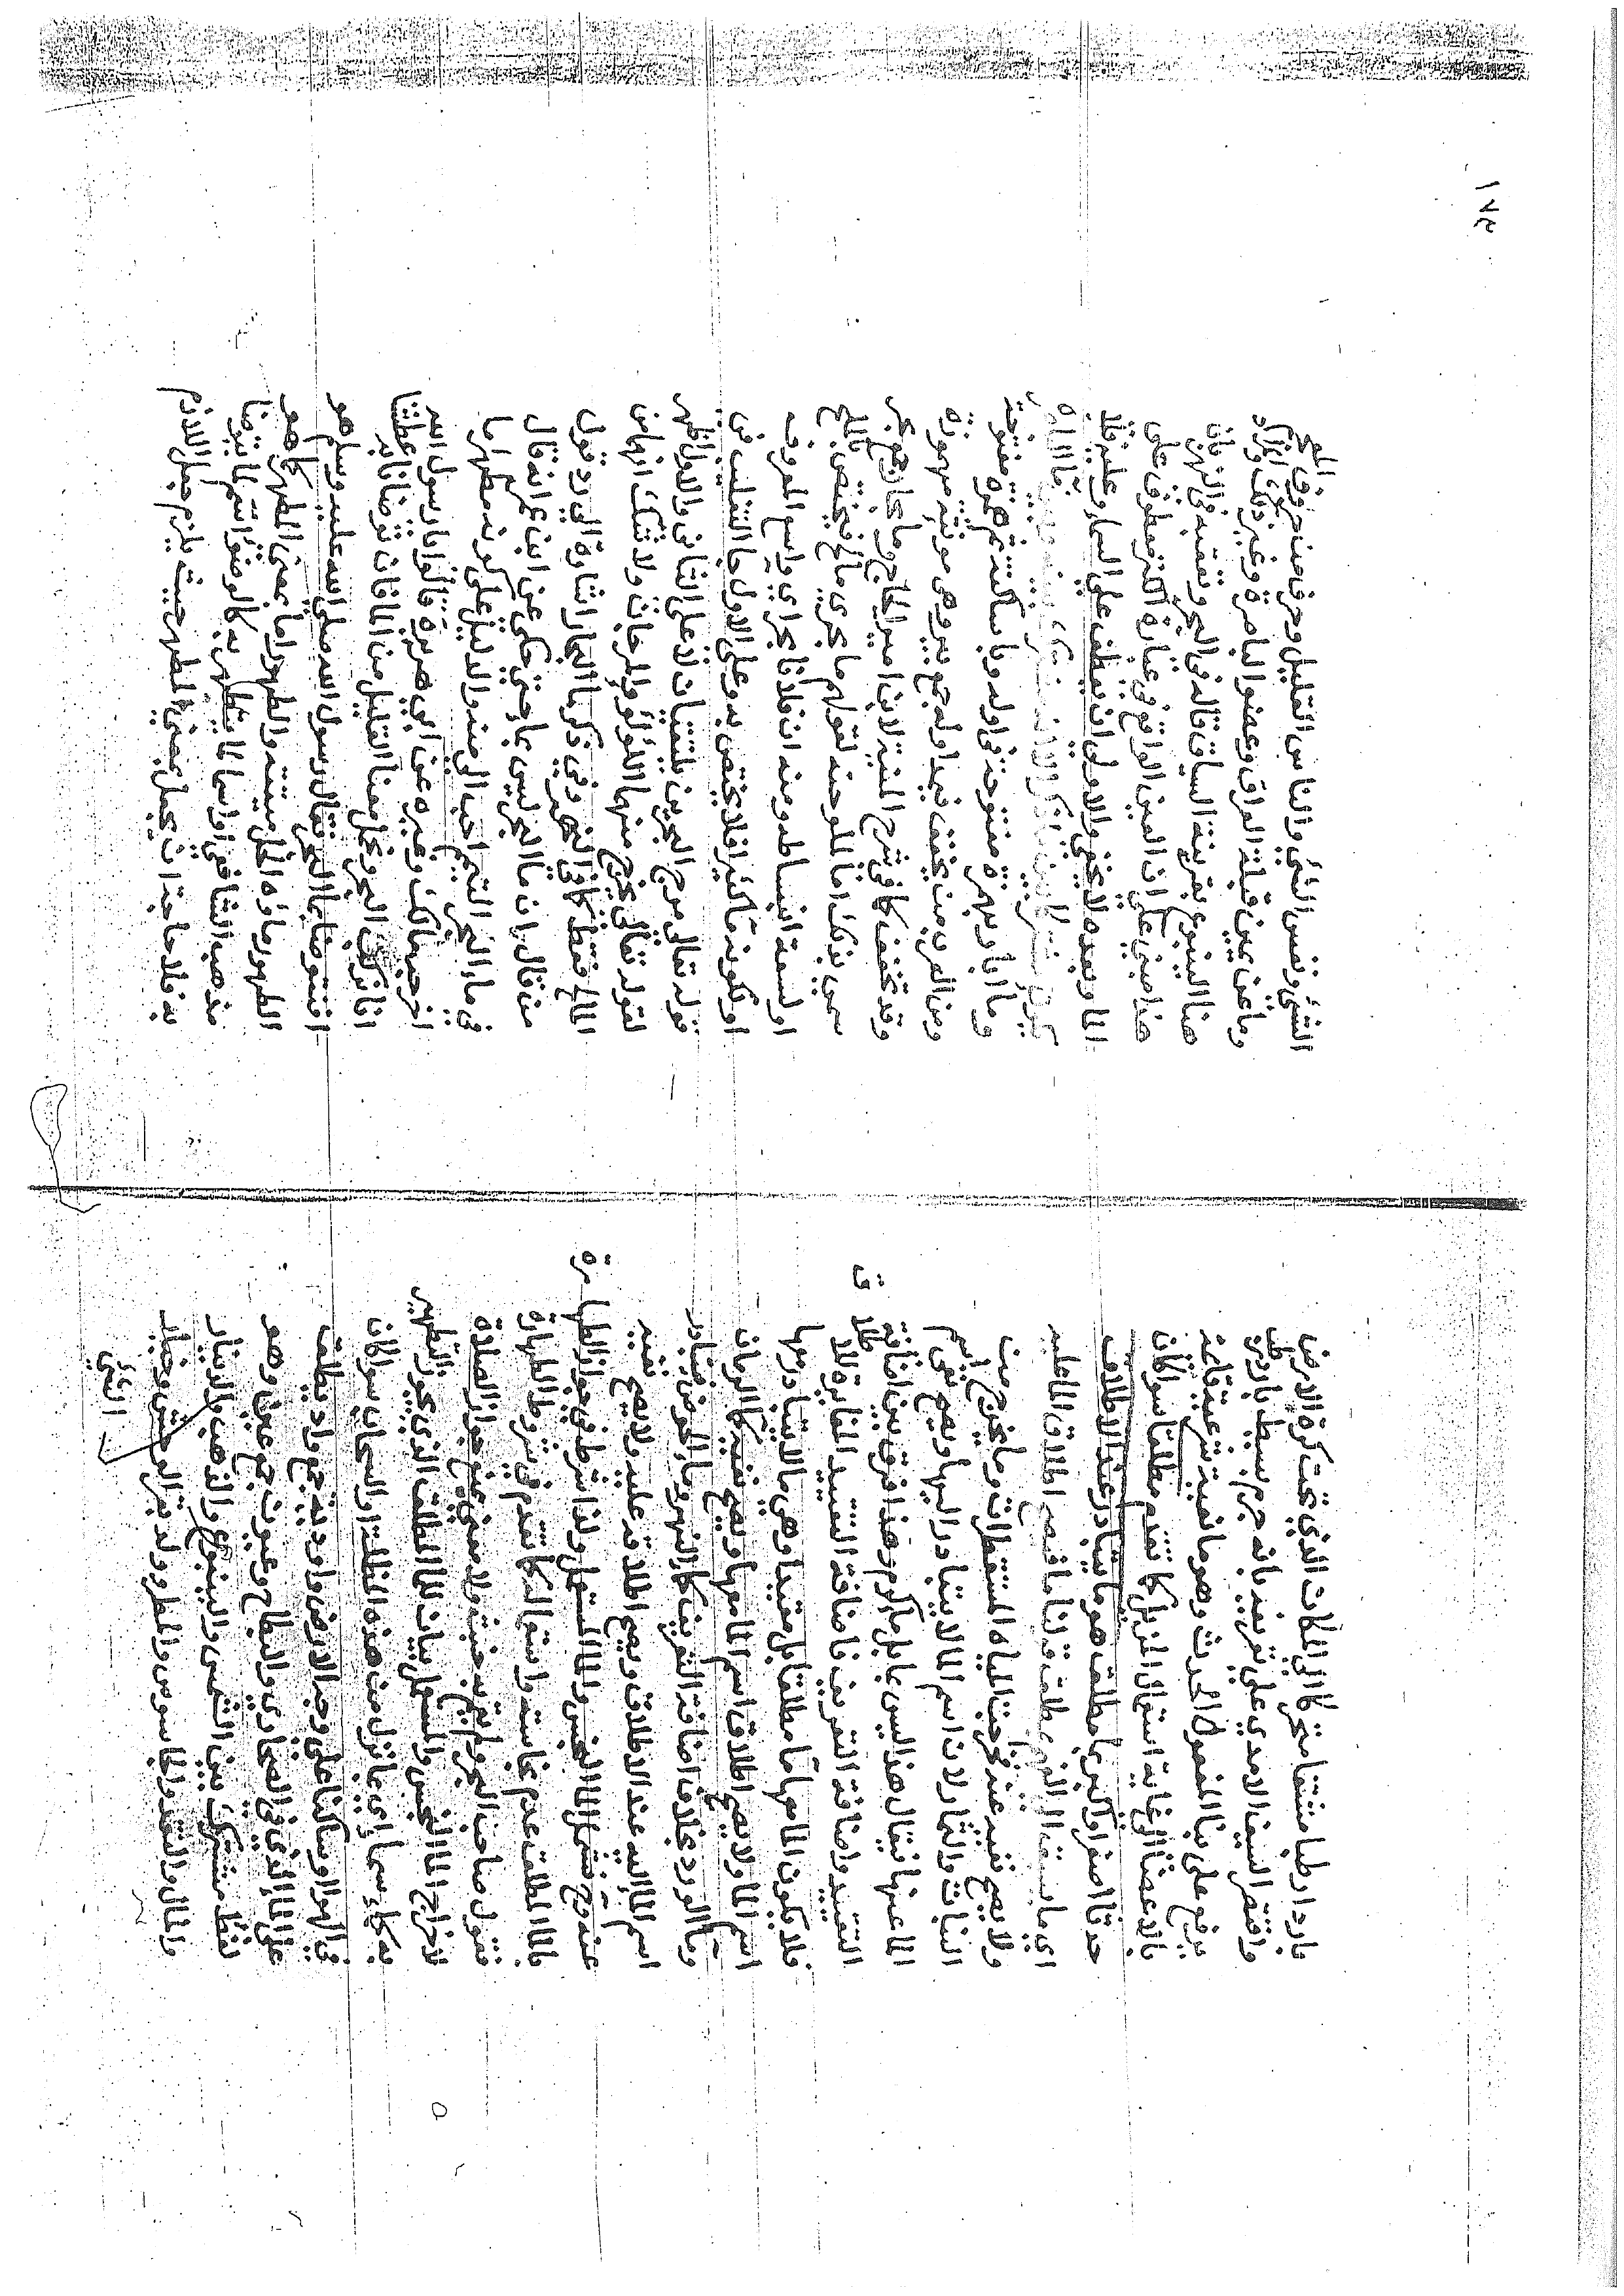 باردا رطبا مشتقا متحركا الى المكان الذي تحت كرة الارض
واقتصر السيف الامدي على تعريفه بانه جرم بسيط بارد رطب
يرفع على بناء المفعول الحدث وهو مانعية شرعية قائمة
بالاعضاء الى غاية استعمال المزيل كما تقدم مطلقا سواء كان
حدثا اصغر او اكبر بما مطلق هو ما يتبادر عند الاطلاق
اي ما يسبق الى الفهم بمطلق قولنا ما فيصح اطلاق الماء عليه
ولا يصح نفيه عنه فخرجت المياه المستقطرات وما يخرج من
النبات والثمار لان اسم الماء لا يتبادر اليها ويصح نفي اسم
الماء عنها فيقال هذا ليس بماء بل ماء كرم وهذا فرق بين اضافة
التقييد واضافة التعريف فاضافة التقييد المغايرة للماء
فلا يكون الماء معها ماء مطلقا بل مقيدا وهي ما لا يتبادر معها
اسم الماء ولا يصح اطلاق اسم الماء معها ويصح نفيه كماء الرمان
وماء الورد بخلاف اضافة التعريف كماء النهر وماء الحوض فيتبادر
اسم الماء اليه عند الاطلاق ويصح اطلاقه عليه ولا يصح نفيه
عنه وخرج الماء النجس والماء المستعمل ولذا شرط في جواز الطهارة
بالماء المطلق عدم نجاسته واستعماله كما تقدم في شروط الطهارة
فقول صاحب البحر ولا معنى يمنع جواز الصلاة
لاخراج الماء النجس والمستعمل بيان للماء المطلق الذي يجوز التطهير
به كماء سماء اي بما نزل من هذه المظلة او السحاب سواء كان
في الهواء او ساكنا على وجه الارض واودية جمع واد يطلق
على الماء الذي في الصحاري والبطاح وعيون جمع عين وهو
لفظ مشترك بين الشمس والينبوع والذهب والدينار
والمال والنقد والجاسوس والمطر وولد البقر الوحشي وخيار
الشيء
١٧٢
الشيء ونفس الشيء والناس القليل وحرف من حروف المعجم
وما عن يمين قبلة العراق وعضو الباصرة وغير ذلك والمراد
هنا الينبوع بقرينة السياق قاله في البحر وتعقبه في النهر بان
هذا مبني على ان العين الواقع في عبارة الكنز معطوف على
الماء وبعده لا يخفى والاولى ان يعطف على السماء وعليه فلا
وماء آبار بهمزة مفتوحة في اوله وباء ساكنة ثم همزة مفتوحة
ومن العرب من يخفف فيه اوله جمع بير وهي مؤنثة مهموزة
وقد تخفف كما في شرح المنية لابن امير الحاج وماء بحار جمع بحر
سمي بذلك اما لملوحته لقولهم ماء بحري مالح فيختص بالملح
او لسعة انبساطه ومنه ان فلانا بحر اي واسع المعروف
او لكونه ماء كثيرا فلا يختص به وعلى الاول جاء التغليب في
قوله تعالى مرج البحرين يلتقيان لا على الثاني والاول اظهر
لقوله تعالى يخرج منهما اللؤلؤ والمرجان ولا شك انهما من
المالح فقط كما في النهر وفي ذكر ماء البحار اشارة الى رد قول
من قال ان ماء البحر ليس بماء حتى حكي عن ابن عمر انه قال
في ماء البحر التيمم احب الي منه والدليل على كونه مطهرا ما
اخرجه مالك وغيره عن ابي هريرة قالوا يا رسول الله
انا نركب البحر ونحمل معنا القليل من الماء فان توضانا به عطشنا
افنتوضا بماء البحر فقال رسول الله صلى الله عليه وسلم هو
الطهور ماؤه الحل ميتته والطهور اما بمعنى المطهر كما هو
مذهب الشافعي او اسما لما يتطهر به كالوضوء اسم لما يتوضا
به فلا حاجة الى ان يجعل بمعنى المطهر حيث يلزم جعل اللازم